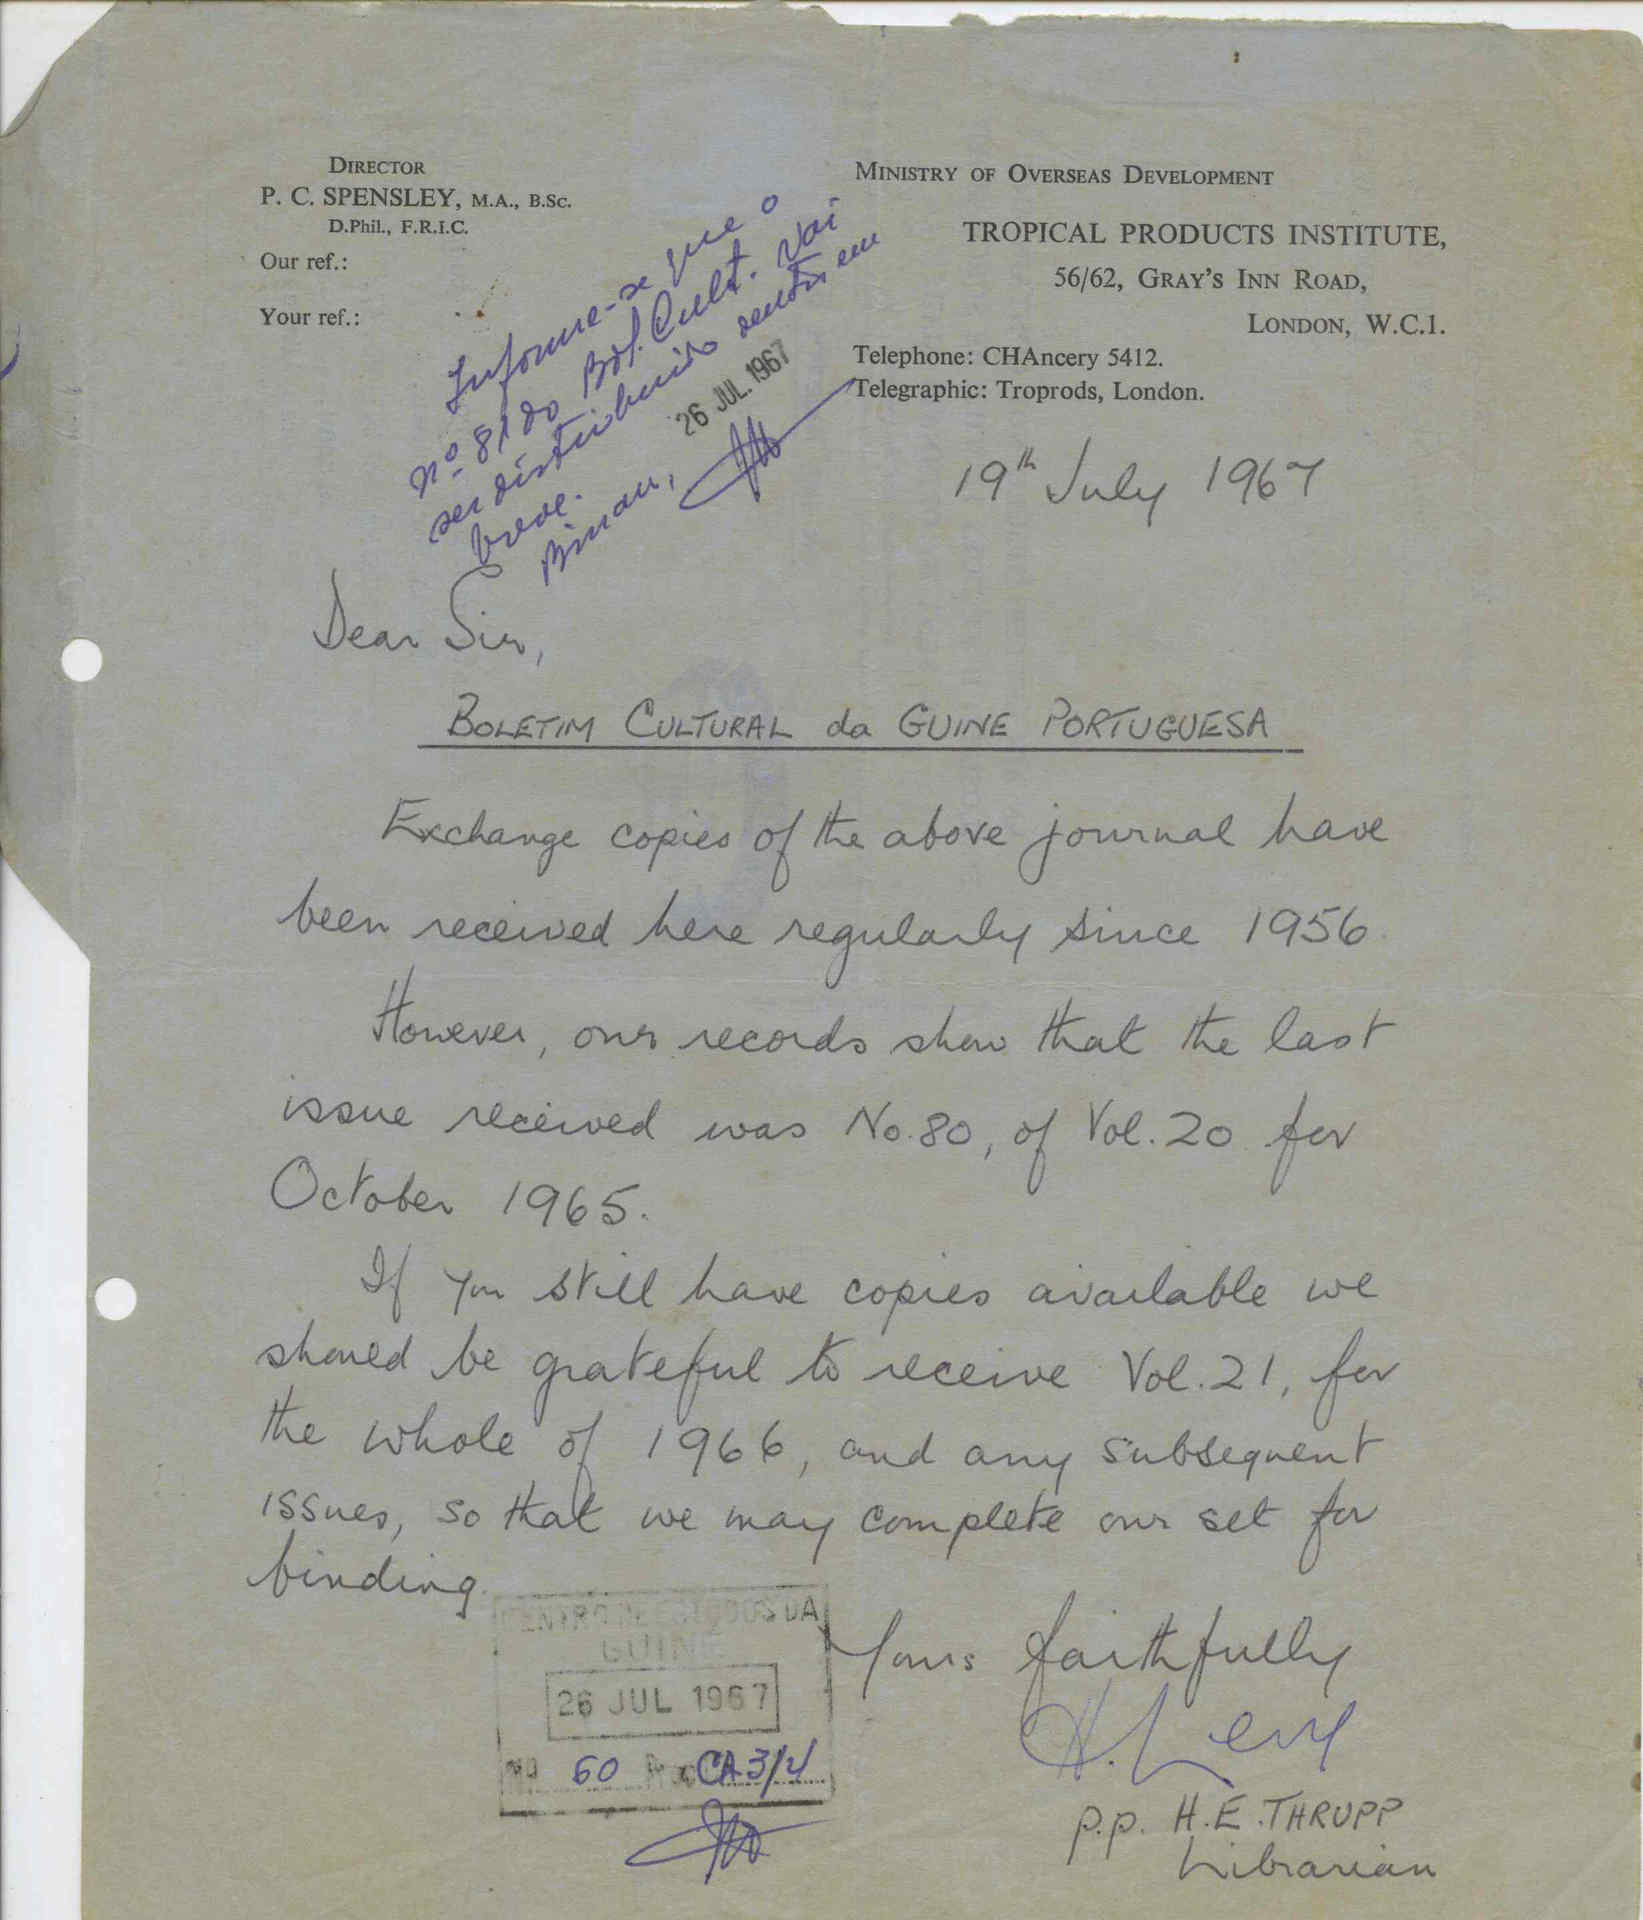 DIRECTOR
P. C. SPENSLEY, M.A., B.Sc.
D.Phil., F.R.I.C.
Our ref.:
Your ref.:
MINISTRY OF OVERSEAS DEVELOPMENT
TROPICAL PRODUCTS INSTITUTE,
56/62, GRAY'S INN ROAD,
LONDON, W.C.1.
Telephone: CHAncery 5412.
Telegraphic: Troprods, London.
Informe-se que o
nº 81 do Bol. Cult. vai
ser distribuido dentro em
breve.
Bissau, 26 JUL. 1967
19th July 1967
Dear Sir,
BOLETIM CULTURAL da GUINE PORTUGUESA
Exchange copies of the above journal have
been received here regularly since 1956.
However, our records show that the last
issue received was No. 80, of Vol. 20 for
October 1965.
If you still have copies available we
should be grateful to receive Vol. 21, for
the whole of 1966, and any subsequent
issues, so that we may complete our set for
binding.
CENTRO DE ESTUDOS DA
GUINÉ
26 JUL 1967
Nº 60 Proc CA 3/4
Yours faithfully
H. Levy
p.p. H.E. THRUPP
Librarian